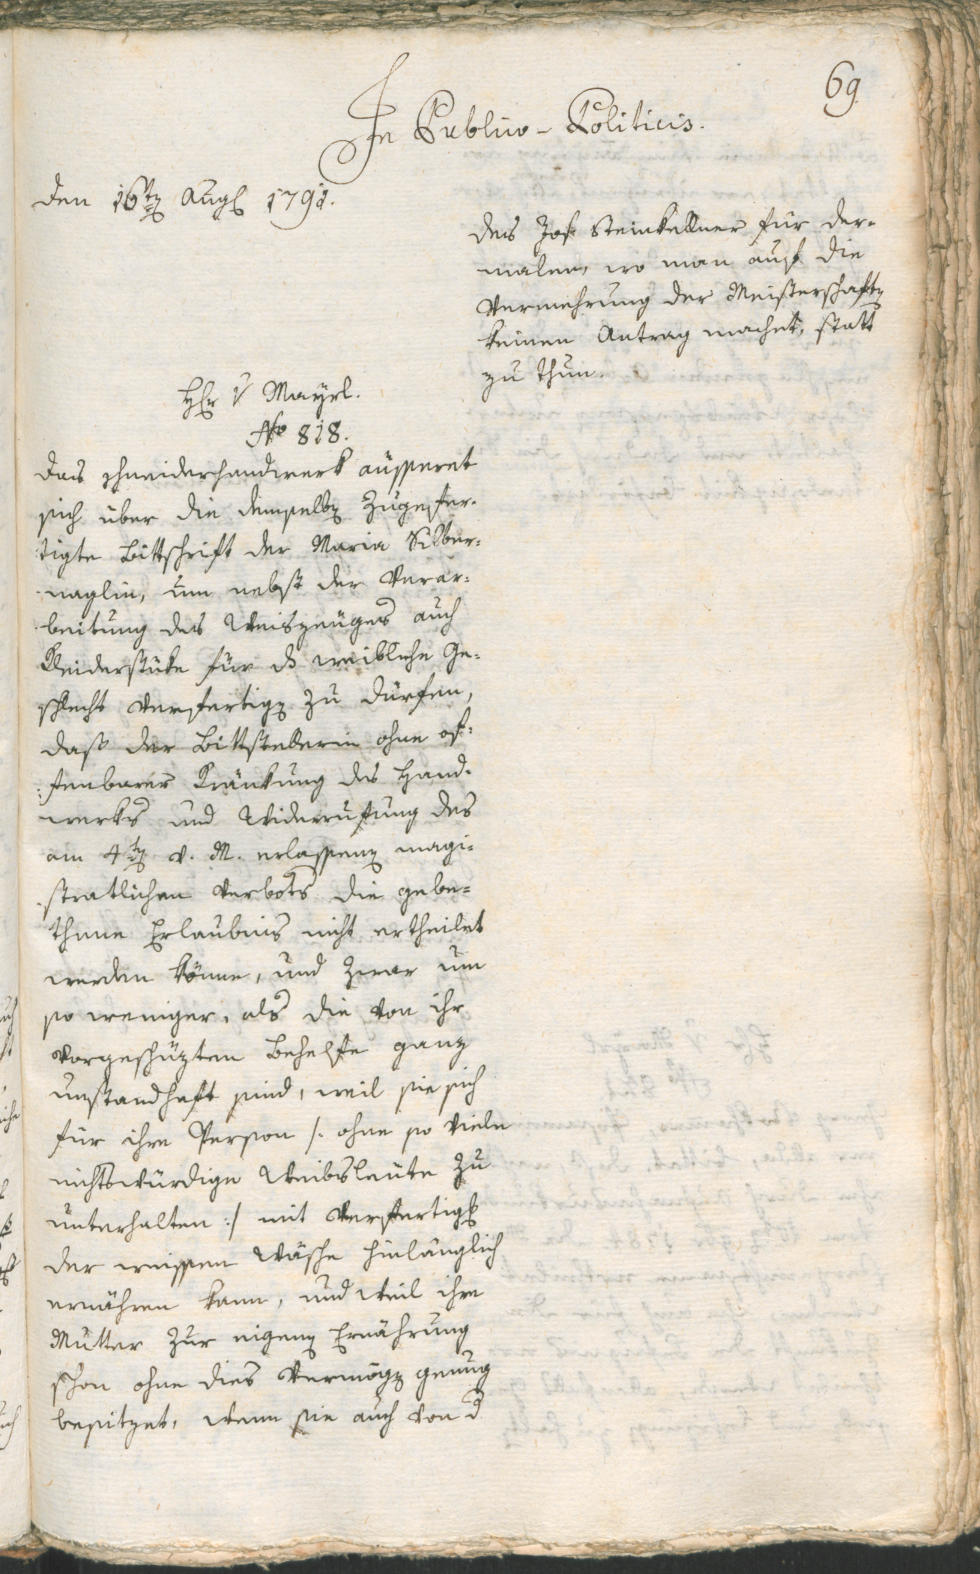 69.
In Publico-Politicis.
den 16ten Augl 1791.
des Jos. Steinkellner für der-
malen, wo man auf die
Vermehrung der Meisterschaften
keinen Antrag machet, statt
zu thun.
Hr v Mayrl.
No 818.
Das Schneiderhandwerk äusseret
sich über die demselben zugefer-
tigte Bittschrift der Maria Silber-
naglin, um nebst der Verar-
beitung des Weiszeuges auch
Kleiderstüke für das weibliche Ge-
schlecht verfertigen zu dürfen,
daß der Bittstellerin ohne of-
fenbarer Kränkung des Hand-
werks und Widerrufung des
am 4ten v. M. erlassenen magi-
stratlichen Verbots die gebe-
thene Erlaubnis nicht ertheilet
werden könne, und zwar um
so weniger, als die von ihr
vorgeschüzten Behelfe ganz
unstandhaft sind, weil sie sich
für ihre Person /: ohne so viele
nichtswürdige Weibsleute zu
unterhalten :/ mit Verfertigung
der weissen Wäsche hinlänglich
ernähren kann, und weil ihre
Mutter zur eigenen Ernährung
schon ohne dies Vermögen genug
besitzet, wenn sie auch von d